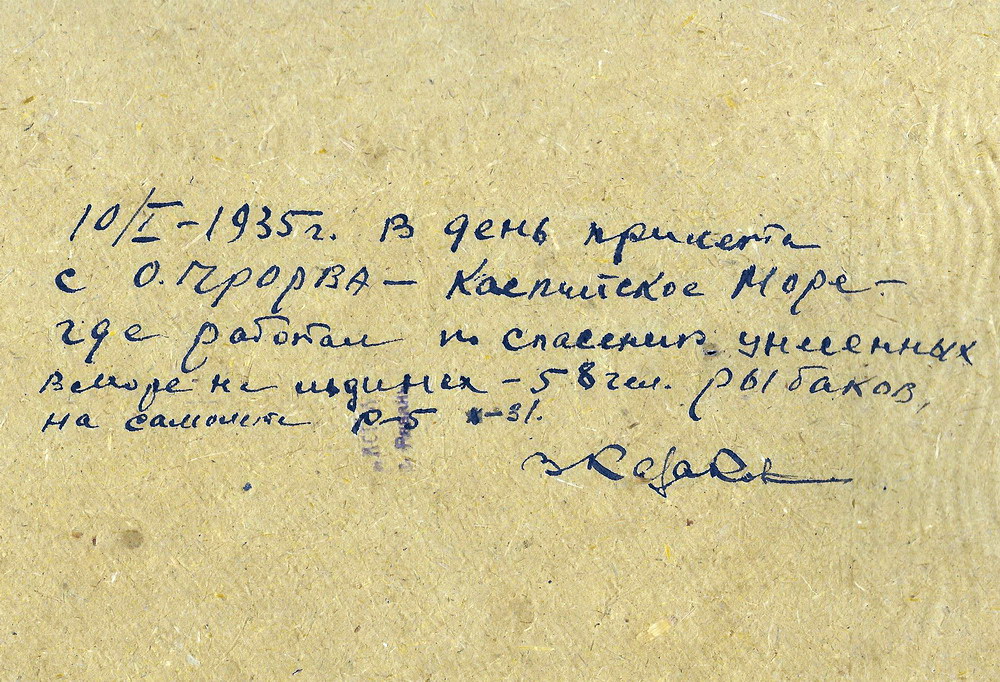 10/I-1935г. В день прилета
с О. ПРОРВА - Каспийское Море -
где работал по спасению унесенных
в море на льдинах - 58 чел. рыбаков,
на самолете Р-5 х-31.
В Казаков